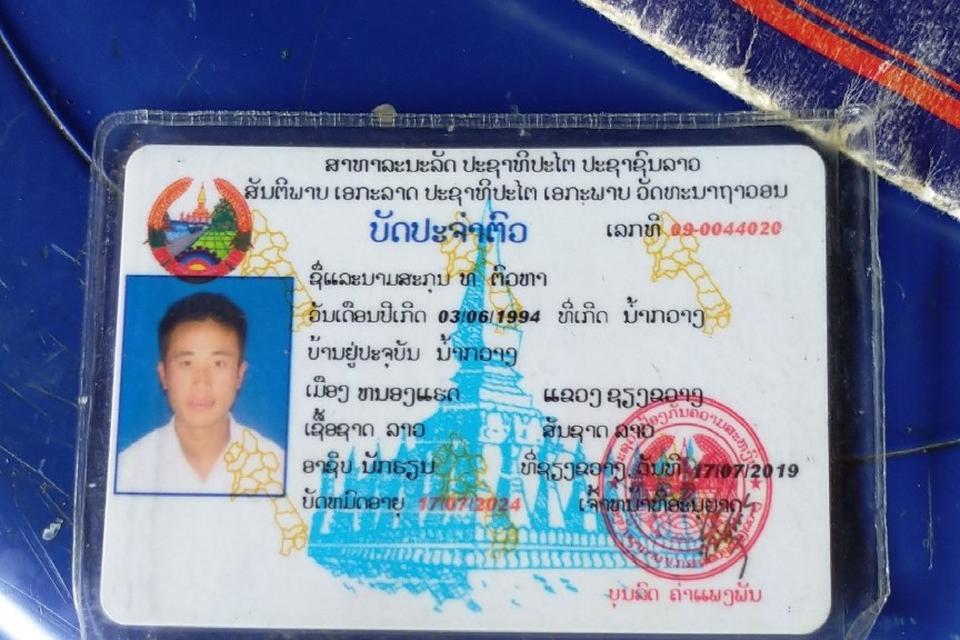 ສາທາລະນະລັດ ປະຊາທິປະໄຕ ປະຊາຊົນລາວ
ສັນຕິພາບ ເອກະລາດ ປະຊາທິປະໄຕ ເອກະພາບ ວັດທະນາຖາວອນ
ບັດປະຈຳຕົວ ເລກທີ 09-0044020
ຊື່ແລະນາມສະກຸນ ທ ຕົວຫາ
ວັນເດືອນປີເກີດ 03/06/1994 ທີ່ເກີດ ນ້ຳກວາງ
ບ້ານຢູ່ປະຈຸບັນ ນ້ຳກວາງ
ເມືອງ ຫນອງແຮດ ແຂວງ ຊຽງຂວາງ
ເຊື້ອຊາດ ລາວ ສັນຊາດ ລາວ
ອາຊີບ ນັກຮຽນ ທີ່ຊຽງຂວາງ ວັນທີ 17/07/2019
ບັດຫມົດອາຍຸ 17/07/2024 ເຈົ້າຫນ້າທີ່ອະນຸຍາດ
ບຸນລິດ ຄຳແພງພັນ